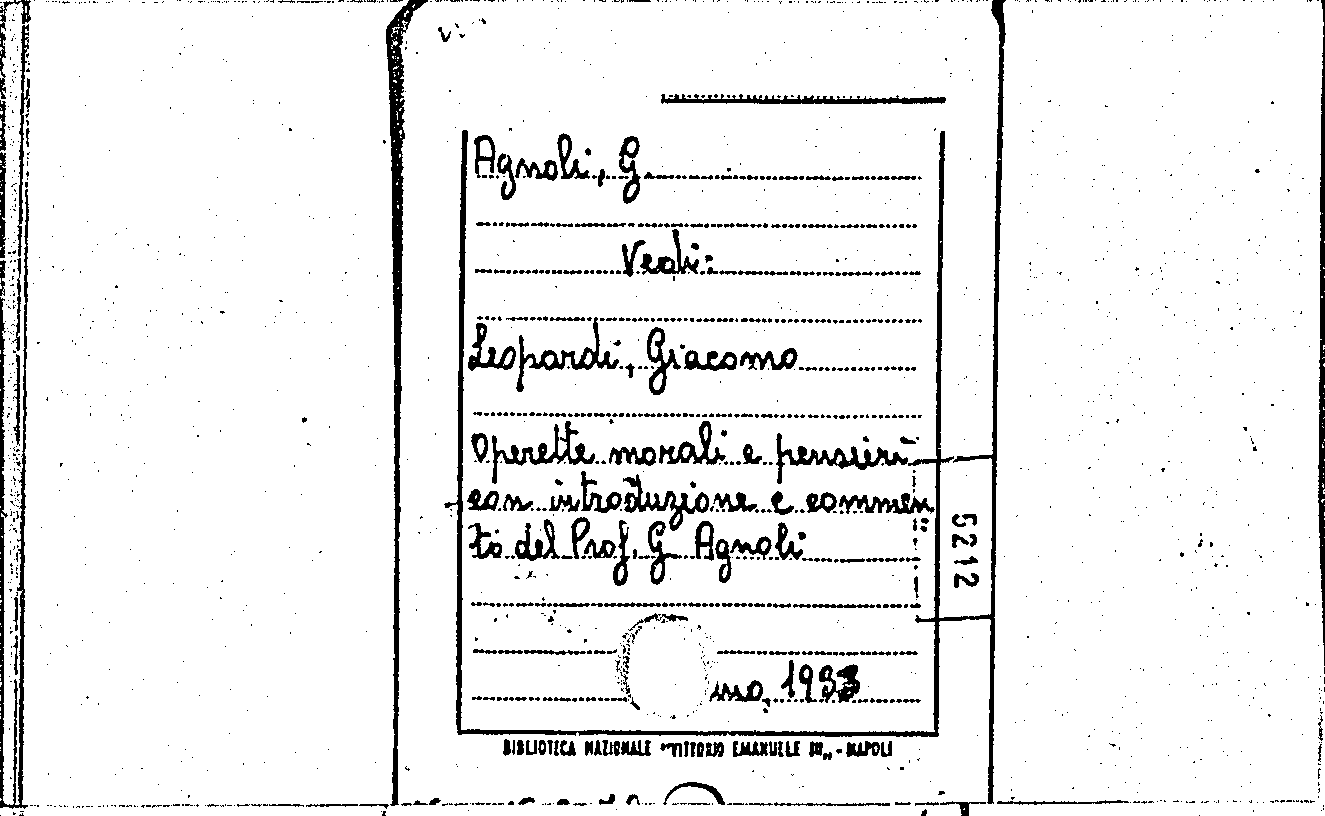 Agnoli, G.
Vedi:
Leopardi, Giacomo
Operette morali e pensieri
con introduzione e commen
to del Prof. G Agnoli
5212
ino, 1933
BIBLIOTECA NAZIONALE "VITTORIO EMANUELE III„ - NAPOLI